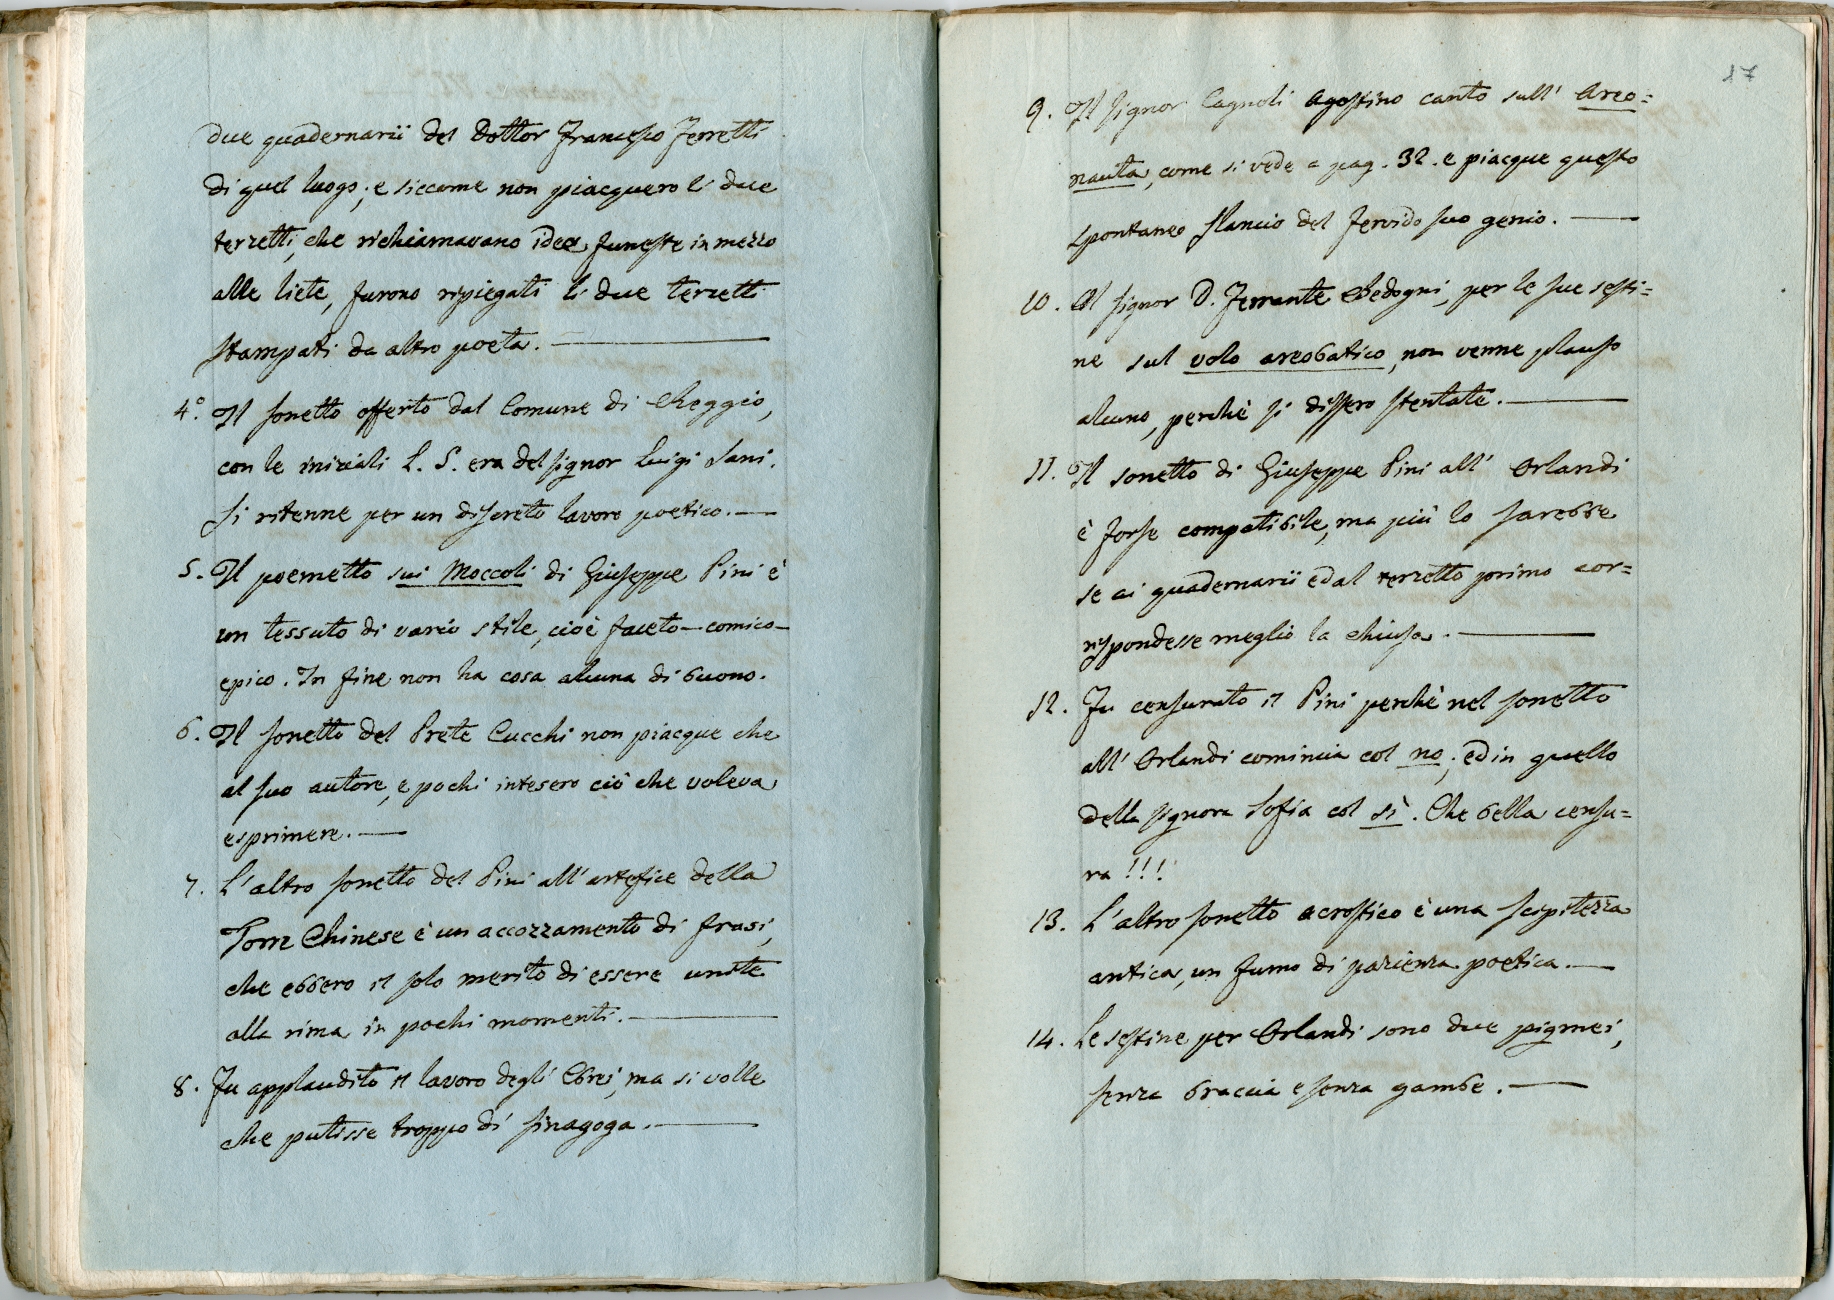 due quadernarii del Dottor Francesco Ferretti
di quel luogo; e siccome non piacquero li due
terzetti, che richiamavano idee funeste in mezzo
alle liete, furono ripiegati li due terzetti
stampati da altro poeta. —
4.° Il sonetto offerto dal Comune di Reggio,
con le iniziali L. S. era del signor Luigi Sani.
Si ritenne per un discreto lavoro poetico. —
5. Il poemetto sui Moccoli di Giuseppe Pini è
un tessuto di vario stile, cioè faceto-comico-
epico. In fine non ha cosa alcuna di buono.
6. Il sonetto del Prete Cucchi non piacque che
al suo autore, e pochi intesero ciò che voleva
esprimere. —
7. L'altro sonetto del Pini all'artefice della
Torre Chinese è un accozzamento di frasi,
che ebbero il solo merito di essere unite
alla rima in pochi momenti. —
8. Fu applaudito il lavoro degli Ebrei, ma si volle
che putisse troppo di sinagoga. —
17
9. Il signor Cagnoli Agostino canto sull' Areo=
nauta, come si vede a pag. 32. e piacque questo
spontaneo slancio del fervido suo genio. —
10. Al signor D. Ferrante Bedogni, per le sue sesti=
ne sul volo areobatico, non venne plauso
alcuno, perchè si dissero stentate. —
11. Il sonetto di Giuseppe Pini all' Orlandi
è forse compatibile, ma più lo sarebbe
se ai quadernarii ed al terzetto primo cor=
rispondesse meglio la chiusa. —
12. Fu censurato il Pini perchè nel sonetto
all' Orlandi comincia col no; ed in quello
della signora Sofia col sì. Che bella censu=
ra !!!
13. L'altro sonetto acrostico è una scipitezza
antica, un fumo di pazienza poetica. —
14. Le sestine per Orlandi sono due pigmei,
senza braccia e senza gambe. —